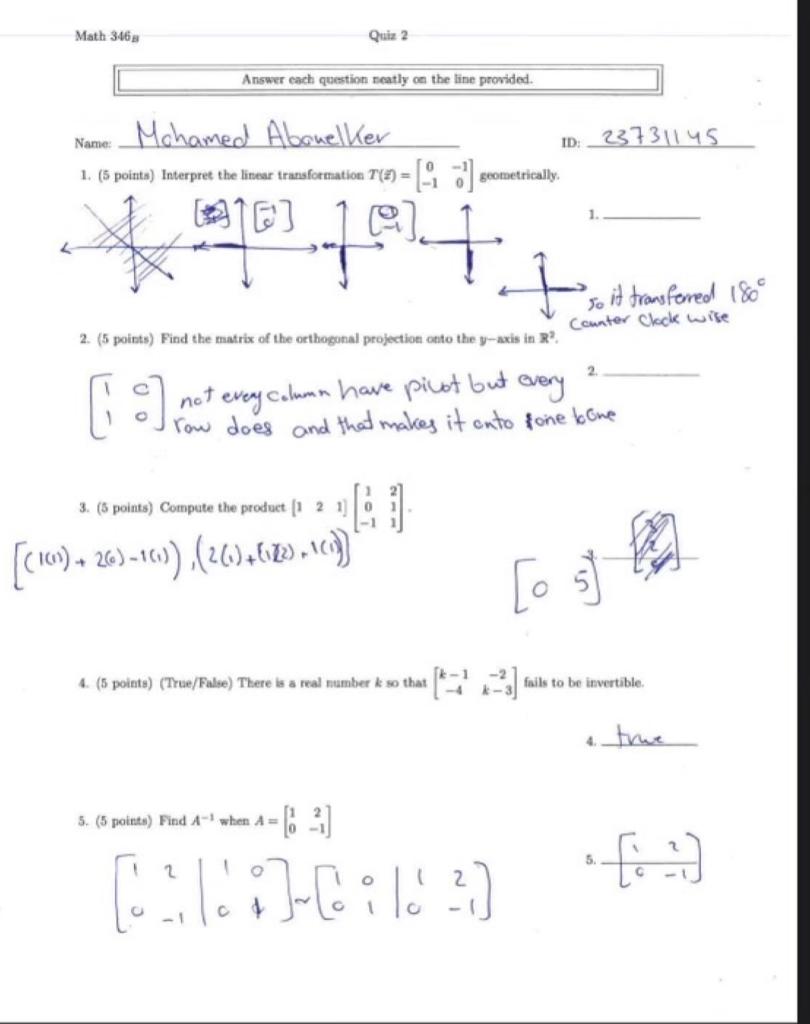 Math 346B Quiz 2
Answer each question neatly on the line provided.
Name: Mohamed Abouelker ID: 23731145
1. (5 points) Interpret the linear transformation T(x⃗) = [0 -1; -1 0] geometrically.
1.
[-1; 0] [0; -1]
so it transferred 180°
counter clock wise
2. (5 points) Find the matrix of the orthogonal projection onto the y-axis in ℝ².
2.
[1 0; 1 0] not every column have pivot but every
row does and that makes it onto one to one
3. (5 points) Compute the product [1 2 1] [1 2; 0 1; -1 1].
[(1(1)+2(0)-1(1)),(2(1)+(1)(2)+1(1))]
3. [0 5]
4. (5 points) (True/False) There is a real number k so that [k-1 -2; -4 k-3] fails to be invertible.
4. true
5. (5 points) Find A⁻¹ when A = [1 2; 0 -1]
[1 2 | 1 0; 0 -1 | 0 1] ~ [1 0 | 1 2; 0 1 | 0 -1]
5. [1 2; 0 -1]